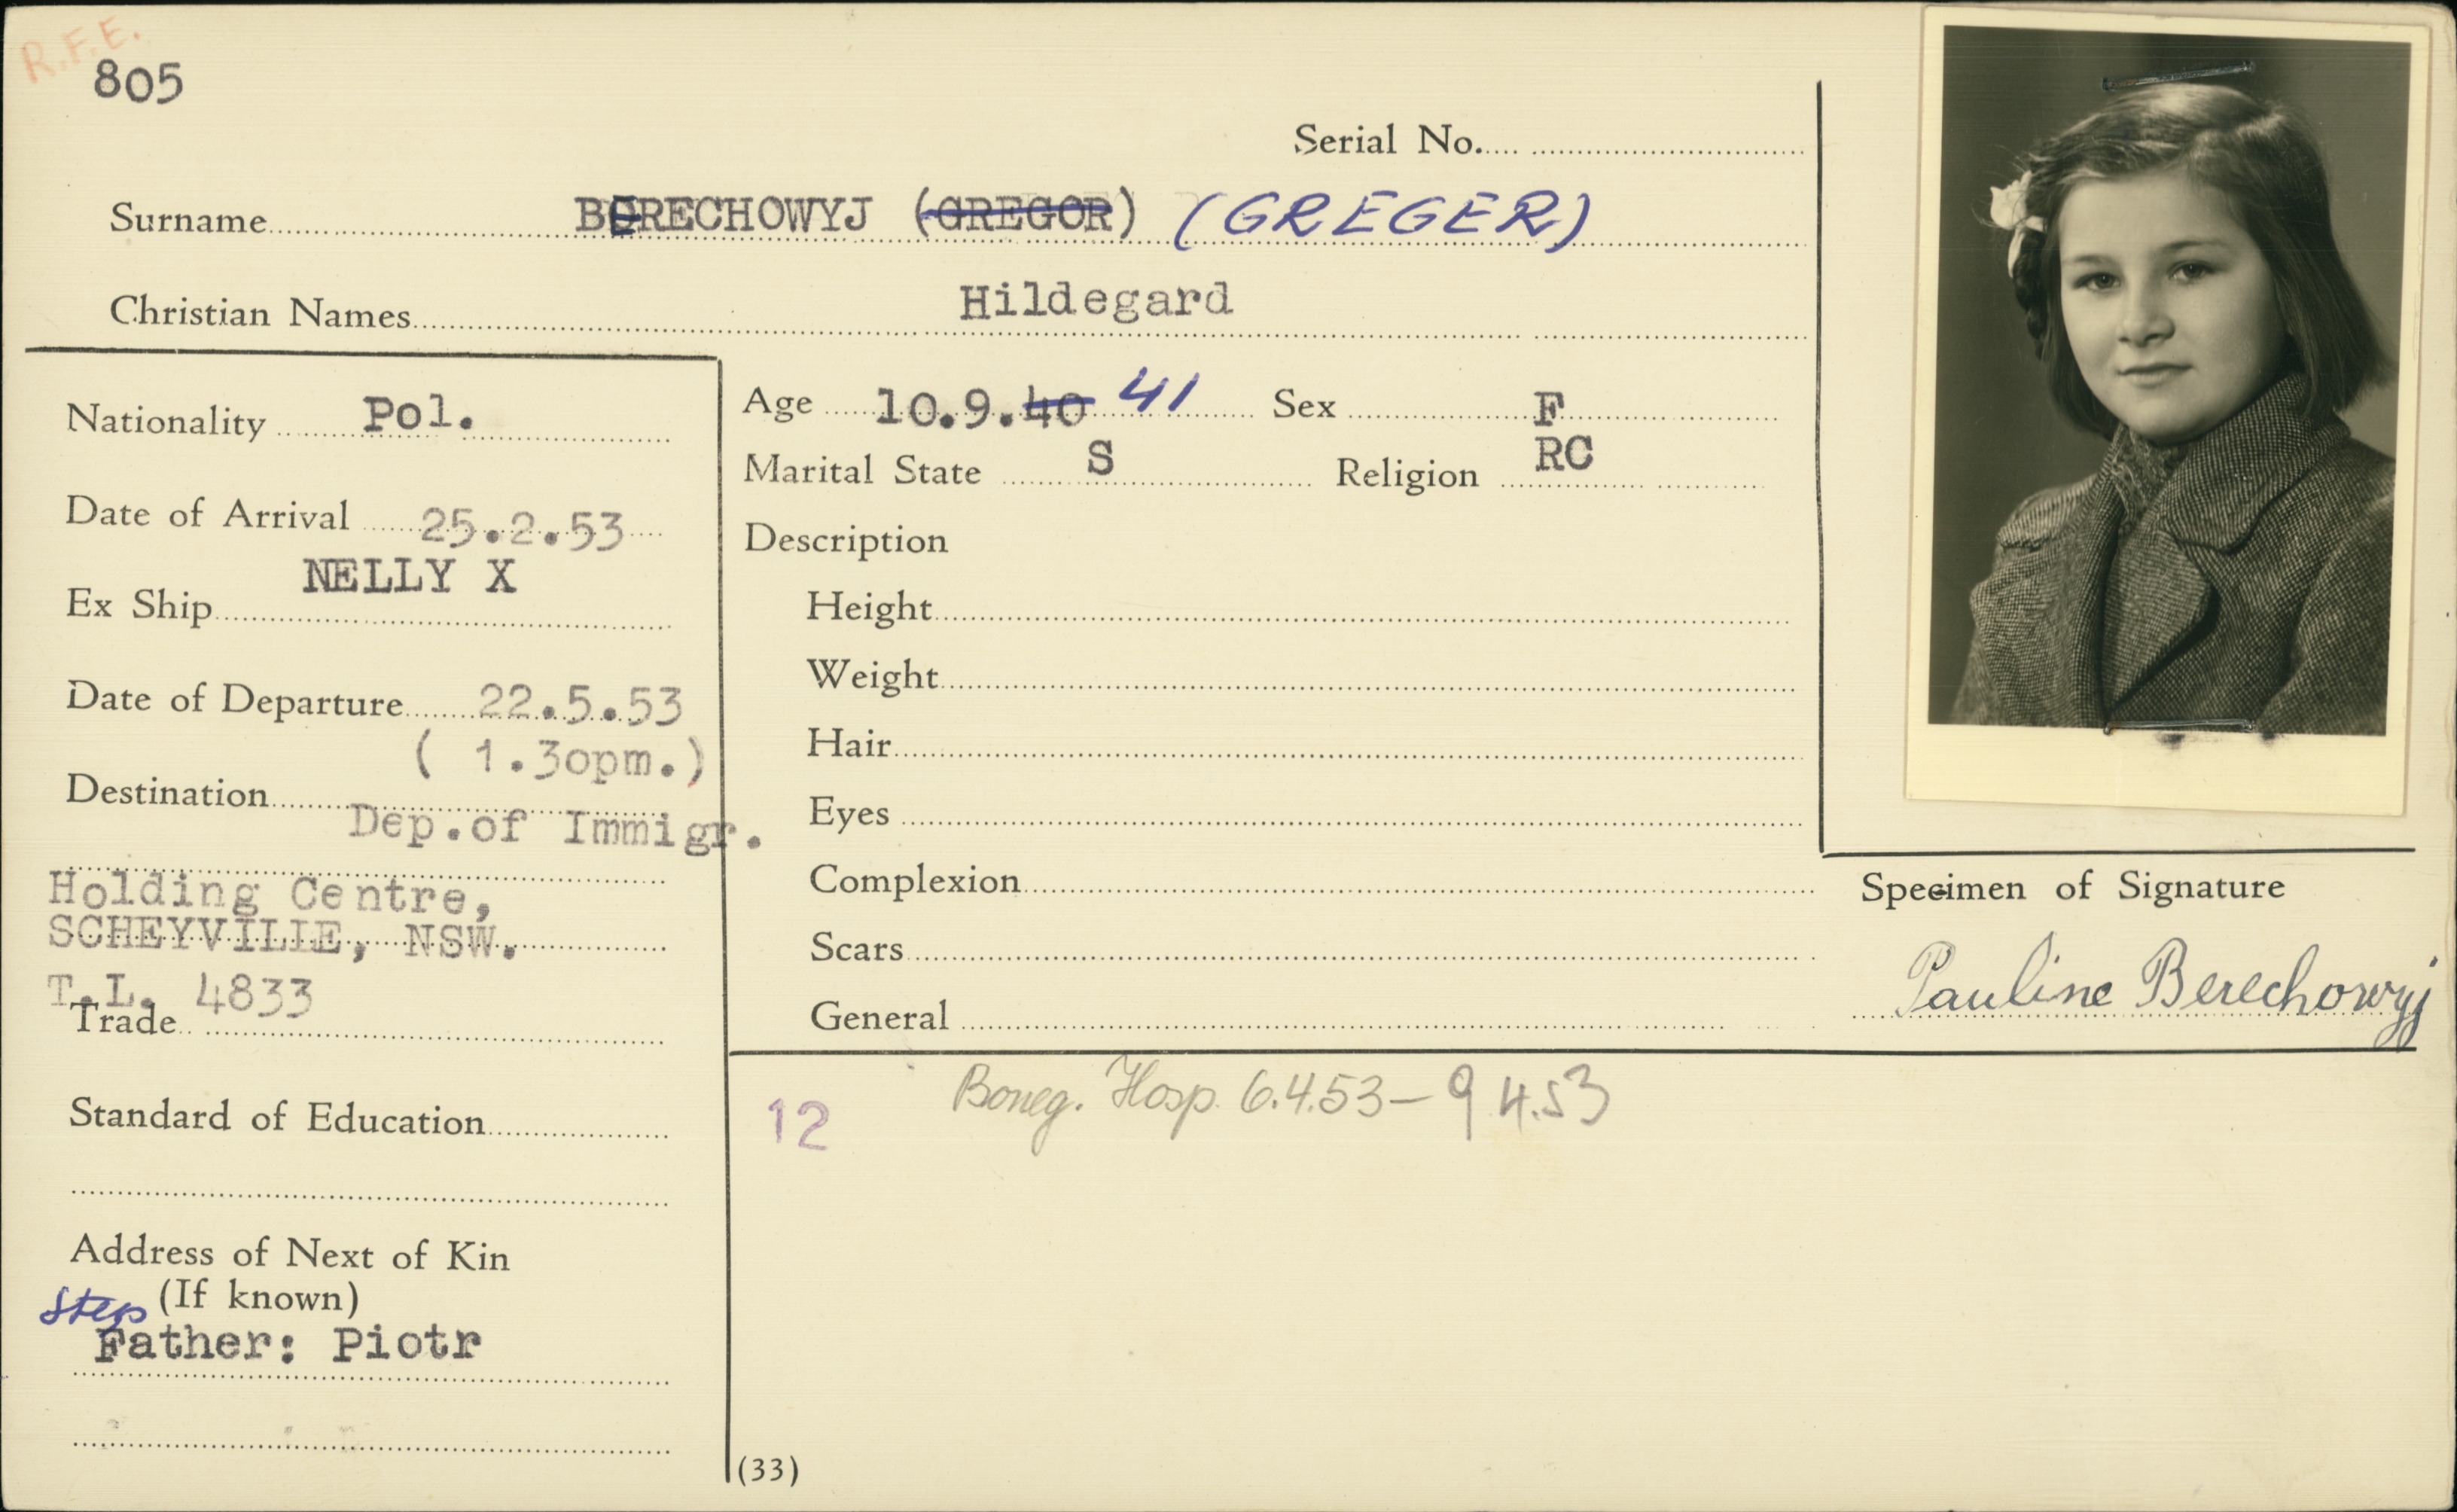 R.F.E.
805
Serial No.
Surname BERECHOWYJ (GREGOR) (GREGER)
Christian Names Hildegard
Nationality Pol.
Date of Arrival 25.2.53
Ex Ship NELLY X
Date of Departure 22.5.53
( 1.30pm.)
Destination
Dep.of Immigr.
Holding Centre,
SCHEYVILLE, NSW.
T.L. 4833
Trade
Standard of Education
Address of Next of Kin
(If known)
Step
Father: Piotr
Age 10.9.40 41 Sex F
Marital State S Religion RC
Description
Height
Weight
Hair
Eyes
Complexion
Scars
General
Specimen of Signature
Pauline Berechowyj
12 Boneg. Hosp. 6.4.53 – 9.4.53
(33)